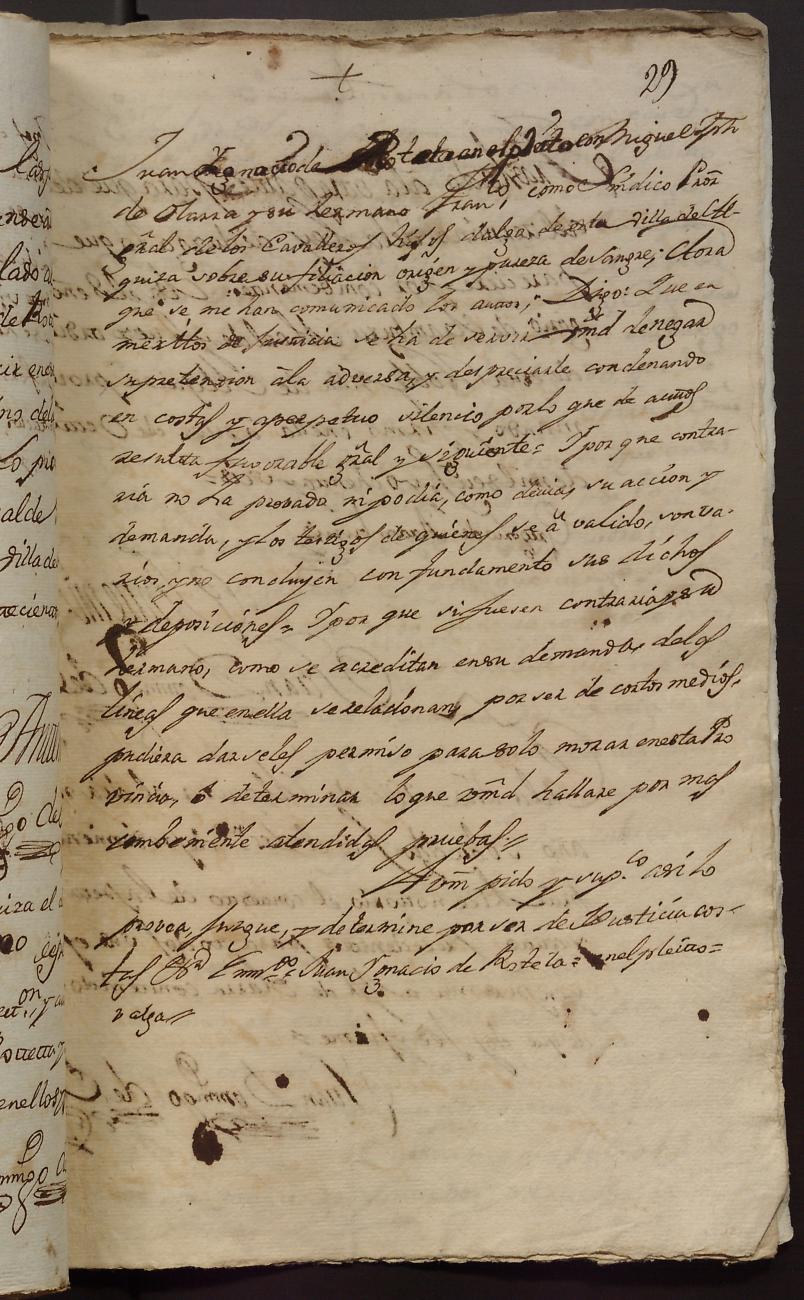 +
29
Juan Ygnacio de Roteta en el pleito con Miguel Jph
de Olarra y su hermano Fran.co, como Sindico Pror
gñral de los Cavalleros hijos dalgo de esta villa de
quiza sobre su filiacion origen y pureza de sangre; Aora
que se me han comunicado los autos; Digo: Que en
meritos de justicia se ha de servir vmd denegar
su pretension â la adversa, y despreciarle condenando
en costas y aperpetuo silencio por lo que de autos
resulta favorable gñral y siguiente= Y por que contra-
ria no ha probado ni podia, como devia, su accion y
demanda, y los testigos de quienes se â valido, son va-
rios, y no concluyen con fundamento sus dichos
y deposiciones= Y por que si fuesen contraria y su
hermano, como se acreditan en su demanda, de los
lineas que en ella se relacionan, por ser de cortos medios,
pudiera darseles permiso para solo morar en esta Pro
vincia, ô determinar lo que vmd hallare por mas
combeniente atendidas pruebas=
A vm pido y sup.co asi lo
provea, juzgue, y determine por ser de Justicia cos-
tas &a Enm.do Juan Ygnacio de Roteta= en el pleito=
valga=